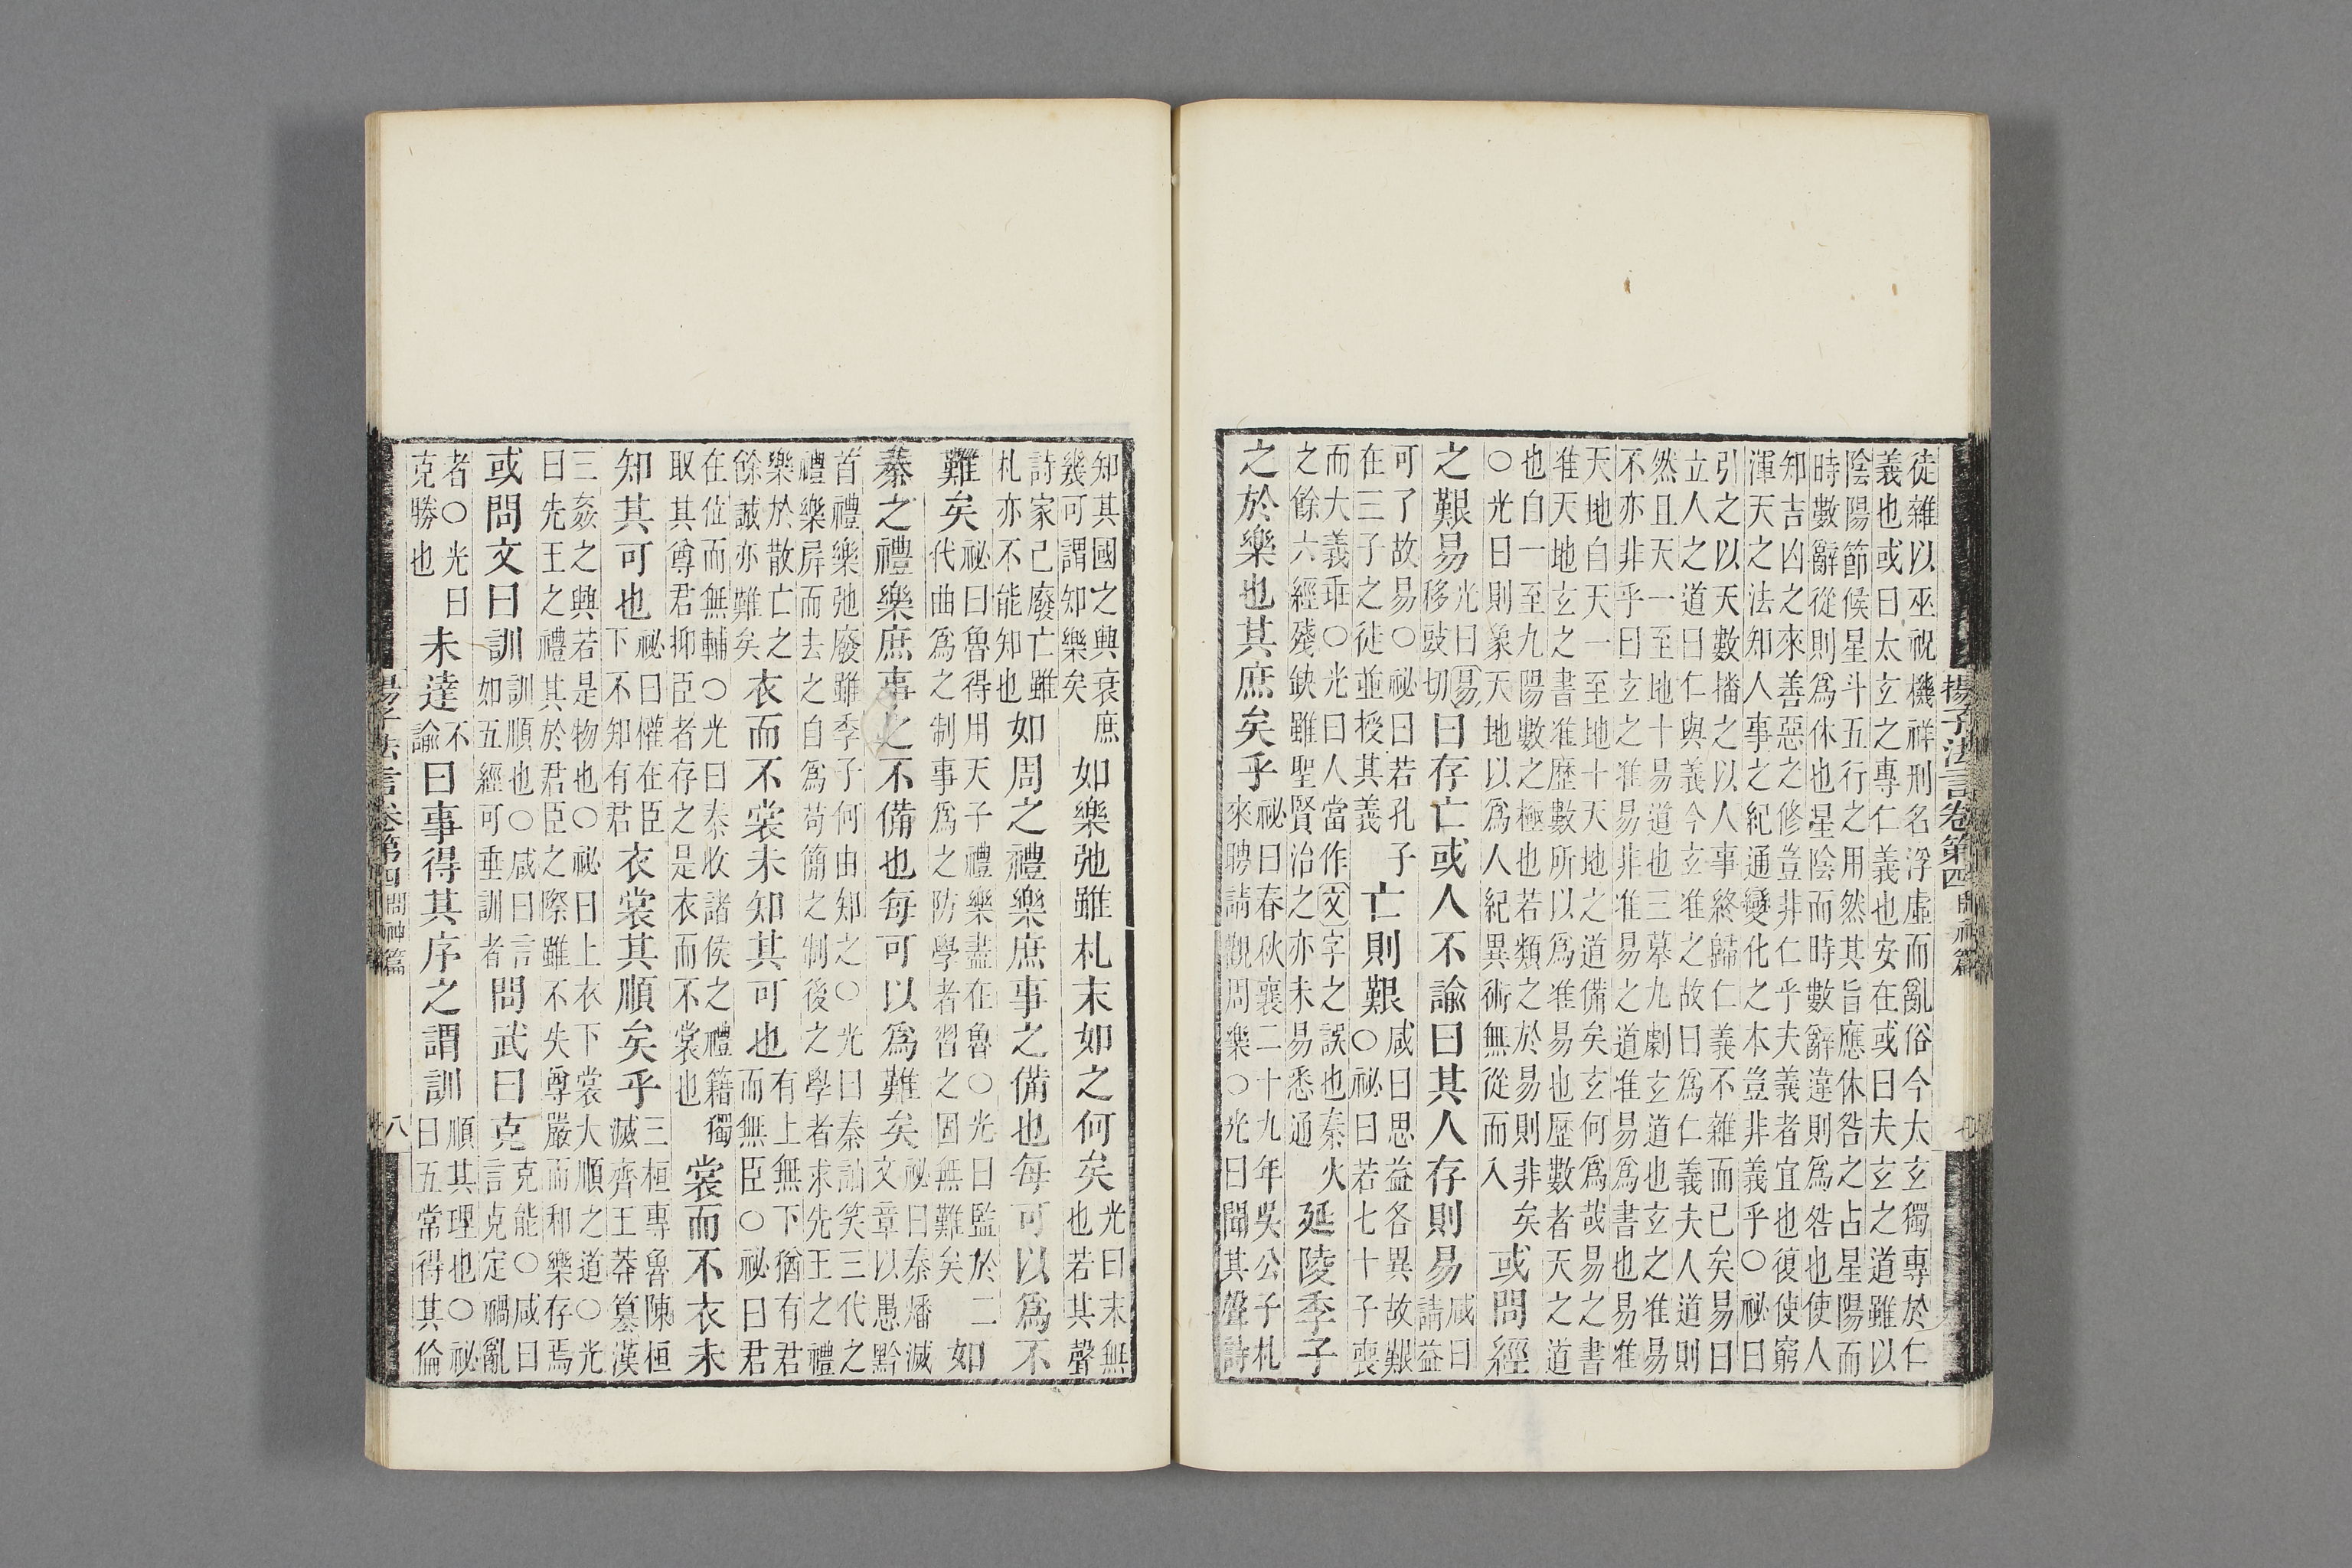 揚子法言卷第四 問神篇 七
徒雜以巫祝機祥刑名浮虛而亂俗今太玄獨專於仁
義也或曰太玄之專仁義也安在或曰夫玄之道雖以
陰陽節候星斗五行之用然其旨應休咎之占星陽而
時數辭從則爲休也星陰而時數辭違則爲咎也使人
知吉凶之來善惡之修豈非仁乎夫義者宜也復使窮
渾天之法知人事之紀通變化之本豈非義乎○祕曰
引之以天數播之以人事終歸仁義不雜而已矣易曰
立人之道曰仁與義今玄准之故曰爲仁義夫人道則
然且天一至地十易道也三摹九劇玄道也玄之准易
不亦非乎曰玄之准易非准易之道准易爲書也易准
天地自天一至地十天地之道備矣玄何爲哉易之書
准天地玄之書准歷數所以爲准易也歷數者天之道
也自一至九陽數之極也若類之於易則非矣
○光曰則象天地以爲人紀異術無從而入
或問經
之艱易光曰易移豉切曰存亡或人不諭曰其人存則易咸曰請益
可了故易○祕曰若孔子
在三子之徒並授其義
亡則艱咸曰思益各異故艱○祕曰若七十子喪
而大義乖○光曰人當作文字之誤也秦火
之餘六經殘缺雖聖賢治之亦未易悉通
延陵季子
之於樂也其庶矣乎祕曰春秋襄二十九年吳公子札來聘請觀周樂○光曰聞其聲詩
知其國之興衰庶
幾可謂知樂矣
如樂弛雖札末如之何矣光曰末無也若其聲
詩家已廢亡雖
札亦不能知也
如周之禮樂庶事之備也每可以爲不
難矣祕曰魯得用天子禮樂盡在魯○光曰監於二代曲爲之制事爲之防學者習之固無難矣如
秦之禮樂庶事之不備也每可以爲難矣祕曰秦燔滅文章以愚黔
首禮樂弛廢雖季子何由知之○光曰秦訕笑三代之
禮樂屏而去之自爲苟簡之制後之學者求先王之禮
樂於散亡之
餘誠亦難矣
衣而不裳未知其可也有上無下猶有君而無臣○祕曰君
在位而無輔○光曰秦收諸侯之禮籍獨
取其尊君抑臣者存之是衣而不裳也
裳而不衣未
知其可也祕曰懽在臣下不知有君衣裳其順矣乎三桓專魯陳恒滅齊王莽篡漢
三姦之興若是物也○祕曰上衣下裳大順之道○光
曰先王之禮其於君臣之際雖不失尊嚴而和樂存焉
或問文曰訓訓順也○咸曰言如五經可垂訓者問武曰克克能○咸曰言克定禍亂
者○光曰
克勝也
未達不諭曰事得其序之謂訓順其理也○祕曰五常得其倫
揚子法言卷第四 問神篇 八